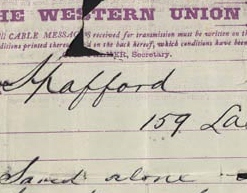 HE WESTERN UNION
CABLE MESSAG S received for transmission must be written on th
ditions printed there on the back hereof, which conditions have been
ER, Secretary.
Spafford
159 La
Saved alone